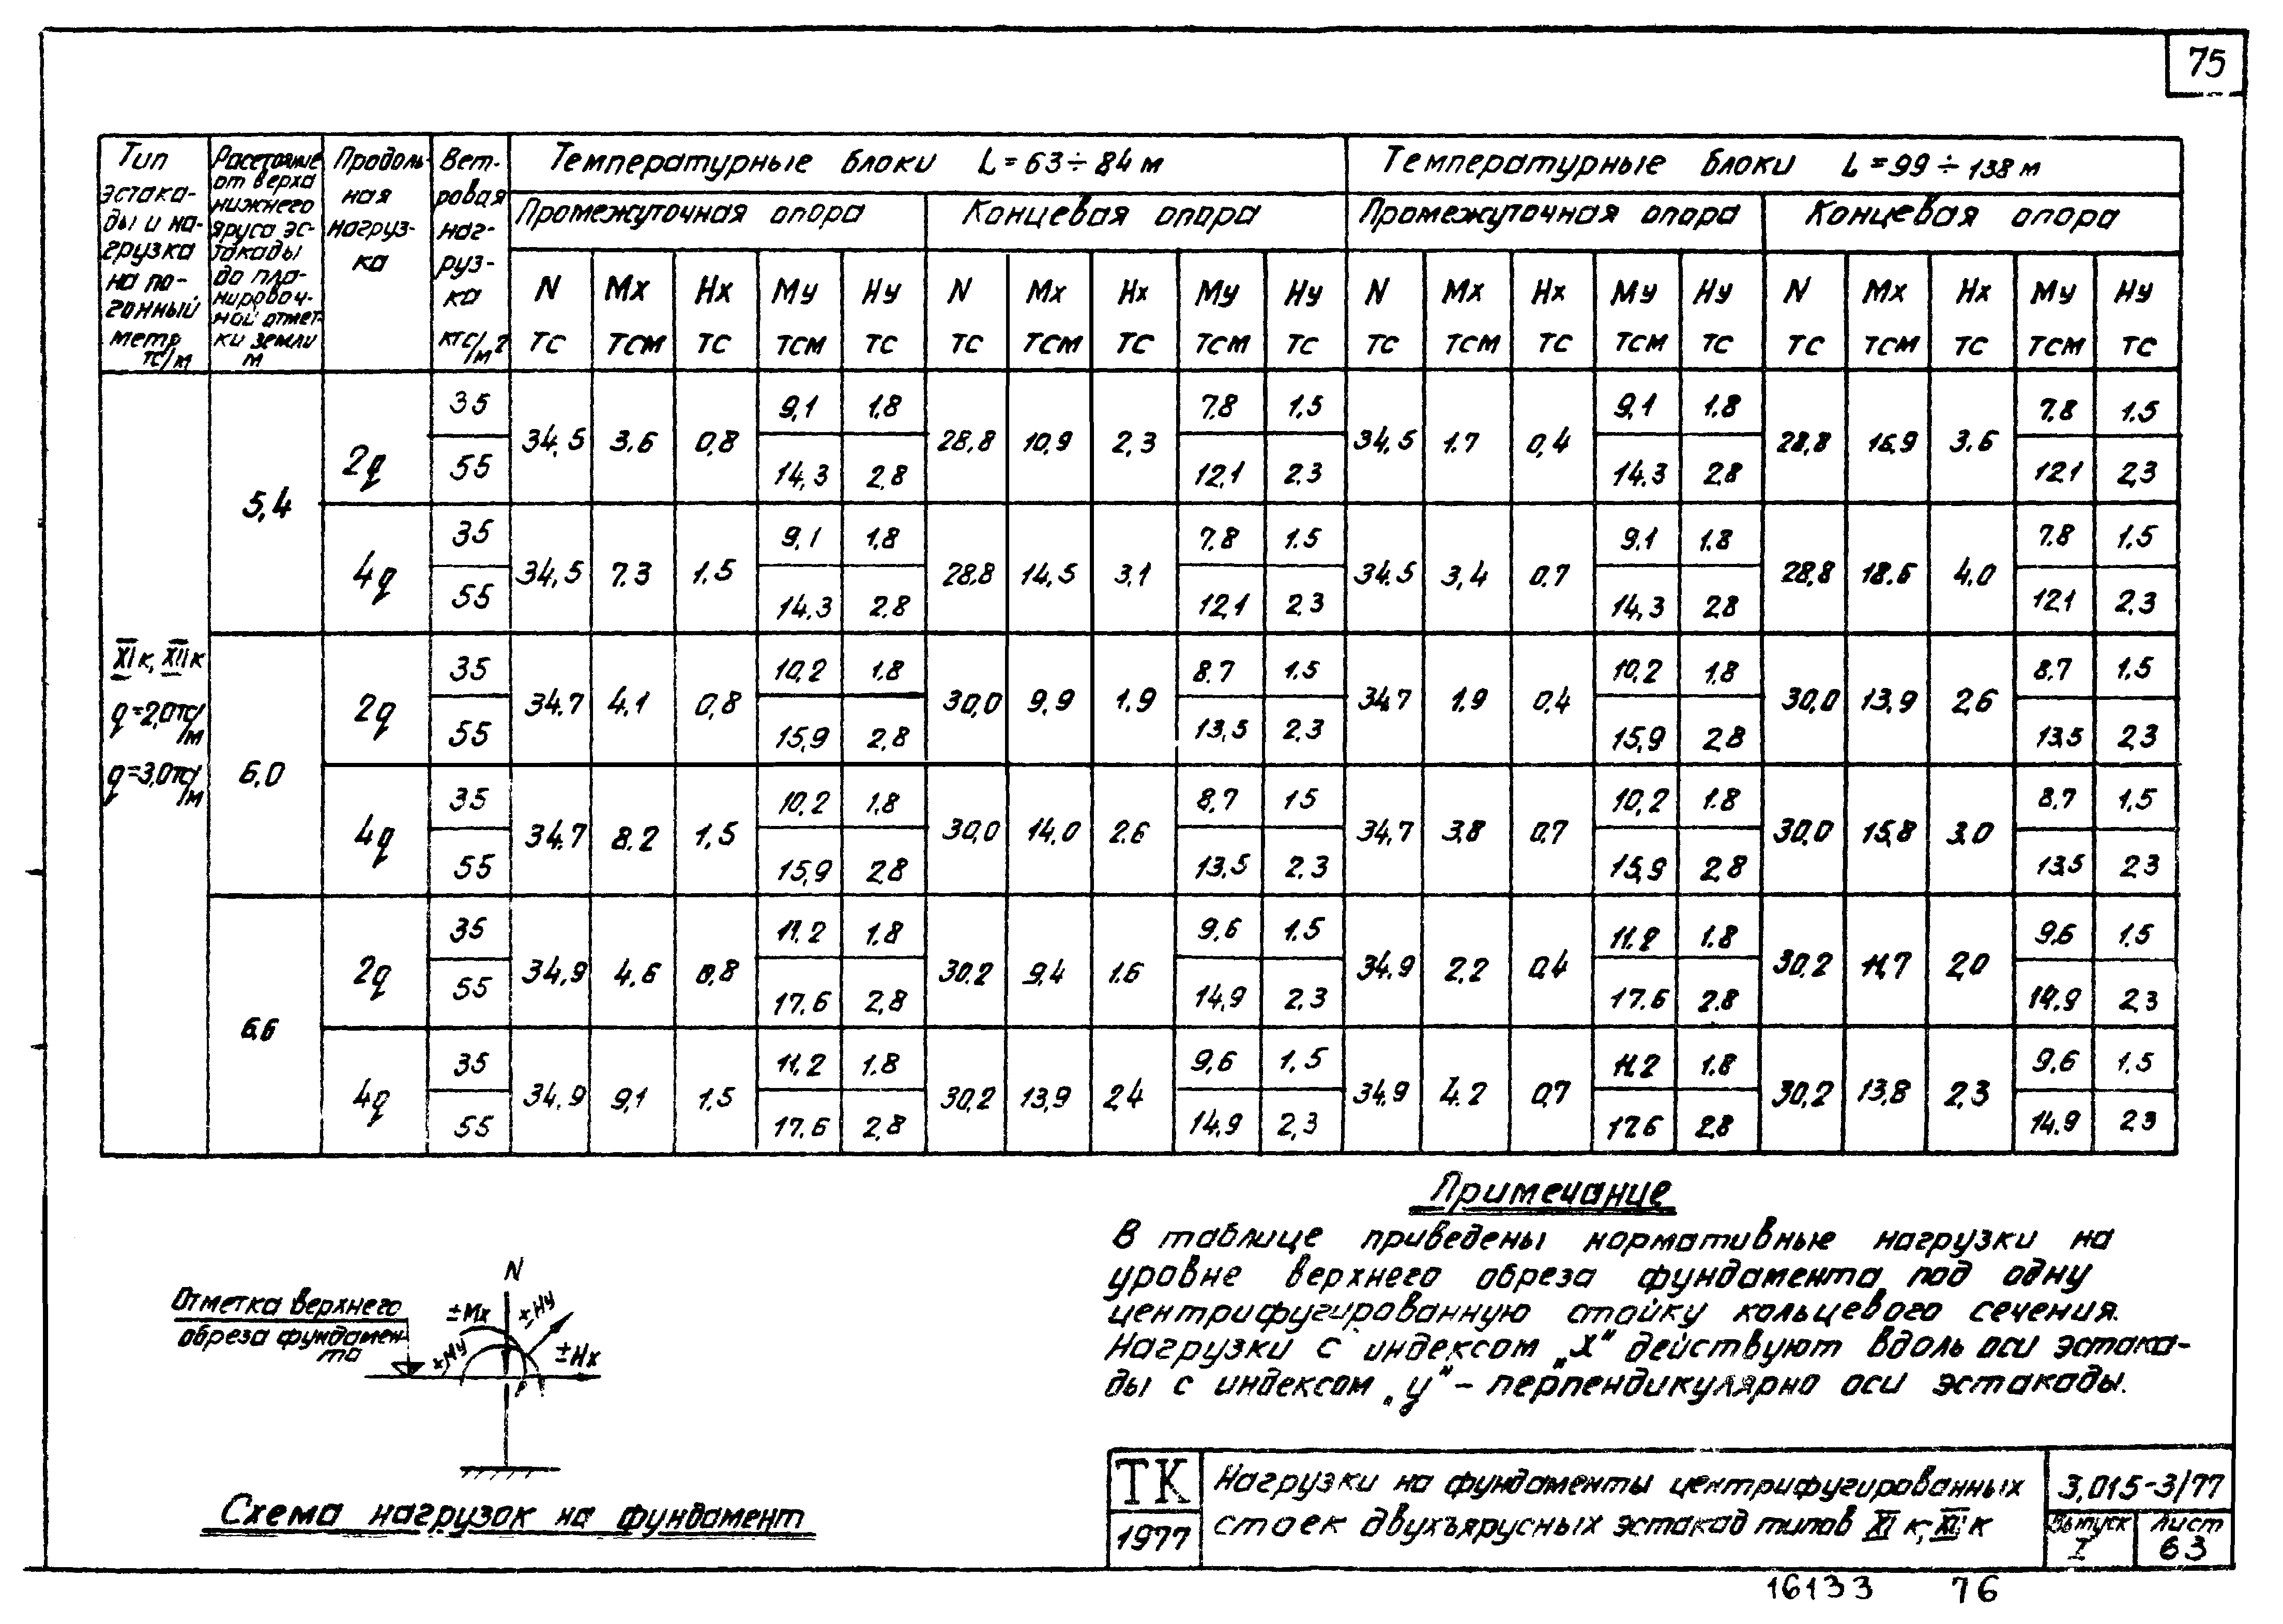 75
Тип эстакады и нагрузка на погонный метр тс/м | Расстояние от верха нижнего яруса эстакады до планировочной отметки земли м | Продольная нагрузка | Ветровая нагрузка кгс/м² | Температурные блоки L=63÷84 м | Температурные блоки L=99÷138 м
Промежуточная опора | Концевая опора | Промежуточная опора | Концевая опора
N | Mx | Hx | My | Hy | N | Mx | Hx | My | Hy | N | Mx | Hx | My | Hy | N | Mx | Hx | My | Hy
тс | тсм | тс | тсм | тс | тс | тсм | тс | тсм | тс | тс | тсм | тс | тсм | тс | тс | тсм | тс | тсм | тс
XIк, XIIк
q=2,0тс/м
q=3,0тс/м
5,4 | 2q | 35 | 34,5 | 3.6 | 0,8 | 9,1 | 1.8 | 28,8 | 10,9 | 2,3 | 7.8 | 1.5 | 34,5 | 1.7 | 0,4 | 9,1 | 1.8 | 28,8 | 16,9 | 3.6 | 7.8 | 1.5
55 | 14,3 | 2,8 | 12,1 | 2.3 | 14.3 | 2.8 | 12.1 | 2,3
4q | 35 | 34,5 | 7.3 | 1.5 | 9,1 | 1,8 | 28.8 | 14,5 | 3,1 | 7.8 | 1.5 | 34.5 | 3,4 | 0.7 | 9.1 | 1.8 | 28,8 | 18.6 | 4,0 | 7.8 | 1.5
55 | 14.3 | 2.8 | 12,1 | 2.3 | 14,3 | 2.8 | 12.1 | 2,3
6,0 | 2q | 35 | 34.7 | 4.1 | 0,8 | 10,2 | 1.8 | 30,0 | 9,9 | 1.9 | 8.7 | 1.5 | 34.7 | 1.9 | 0.4 | 10,2 | 1.8 | 30,0 | 13,9 | 2,6 | 8.7 | 1.5
55 | 15,9 | 2,8 | 13,5 | 2.3 | 15,9 | 2.8 | 13.5 | 2,3
4q | 35 | 34.7 | 8.2 | 1,5 | 10,2 | 1.8 | 30,0 | 14.0 | 2.6 | 8,7 | 1.5 | 34,7 | 3.8 | 0.7 | 10,2 | 1.8 | 30.0 | 15,8 | 3.0 | 8,7 | 1,5
55 | 15,9 | 2.8 | 13,5 | 2.3 | 15,9 | 2,8 | 13.5 | 2.3
6.6 | 2q | 35 | 34,9 | 4.6 | 0,8 | 11.2 | 1.8 | 30.2 | 9,4 | 1.6 | 9.6 | 1.5 | 34.9 | 2.2 | 0.4 | 11.2 | 1.8 | 30,2 | 11,7 | 2,0 | 9,6 | 1.5
55 | 17.6 | 2,8 | 14,9 | 2.3 | 17.6 | 2.8 | 14.9 | 2,3
4q | 35 | 34.9 | 9,1 | 1.5 | 11,2 | 1.8 | 30,2 | 13,9 | 2,4 | 9,6 | 1,5 | 34.9 | 4.2 | 0,7 | 11.2 | 1.8 | 30,2 | 13,8 | 2,3 | 9.6 | 1,5
55 | 17.6 | 2,8 | 14,9 | 2,3 | 17.6 | 2.8 | 14.9 | 2.3
Примечание
В таблице приведены нормативные нагрузки на
уровне верхнего обреза фундамента под одну
центрифугированную стойку кольцевого сечения.
Нагрузки с индексом „х" действуют вдоль оси эстака-
ды с индексом „у" – перпендикулярно оси эстакады.
N
Отметка верхнего
обреза фундамен-
та
±Mx
±Hx
Схема нагрузок на фундамент
ТК
1977
Нагрузки на фундаменты центрифугированных
стоек двухъярусных эстакад типов XIк; XIIк
3.015-3/77
Выпуск
I
Лист
63
16133 76